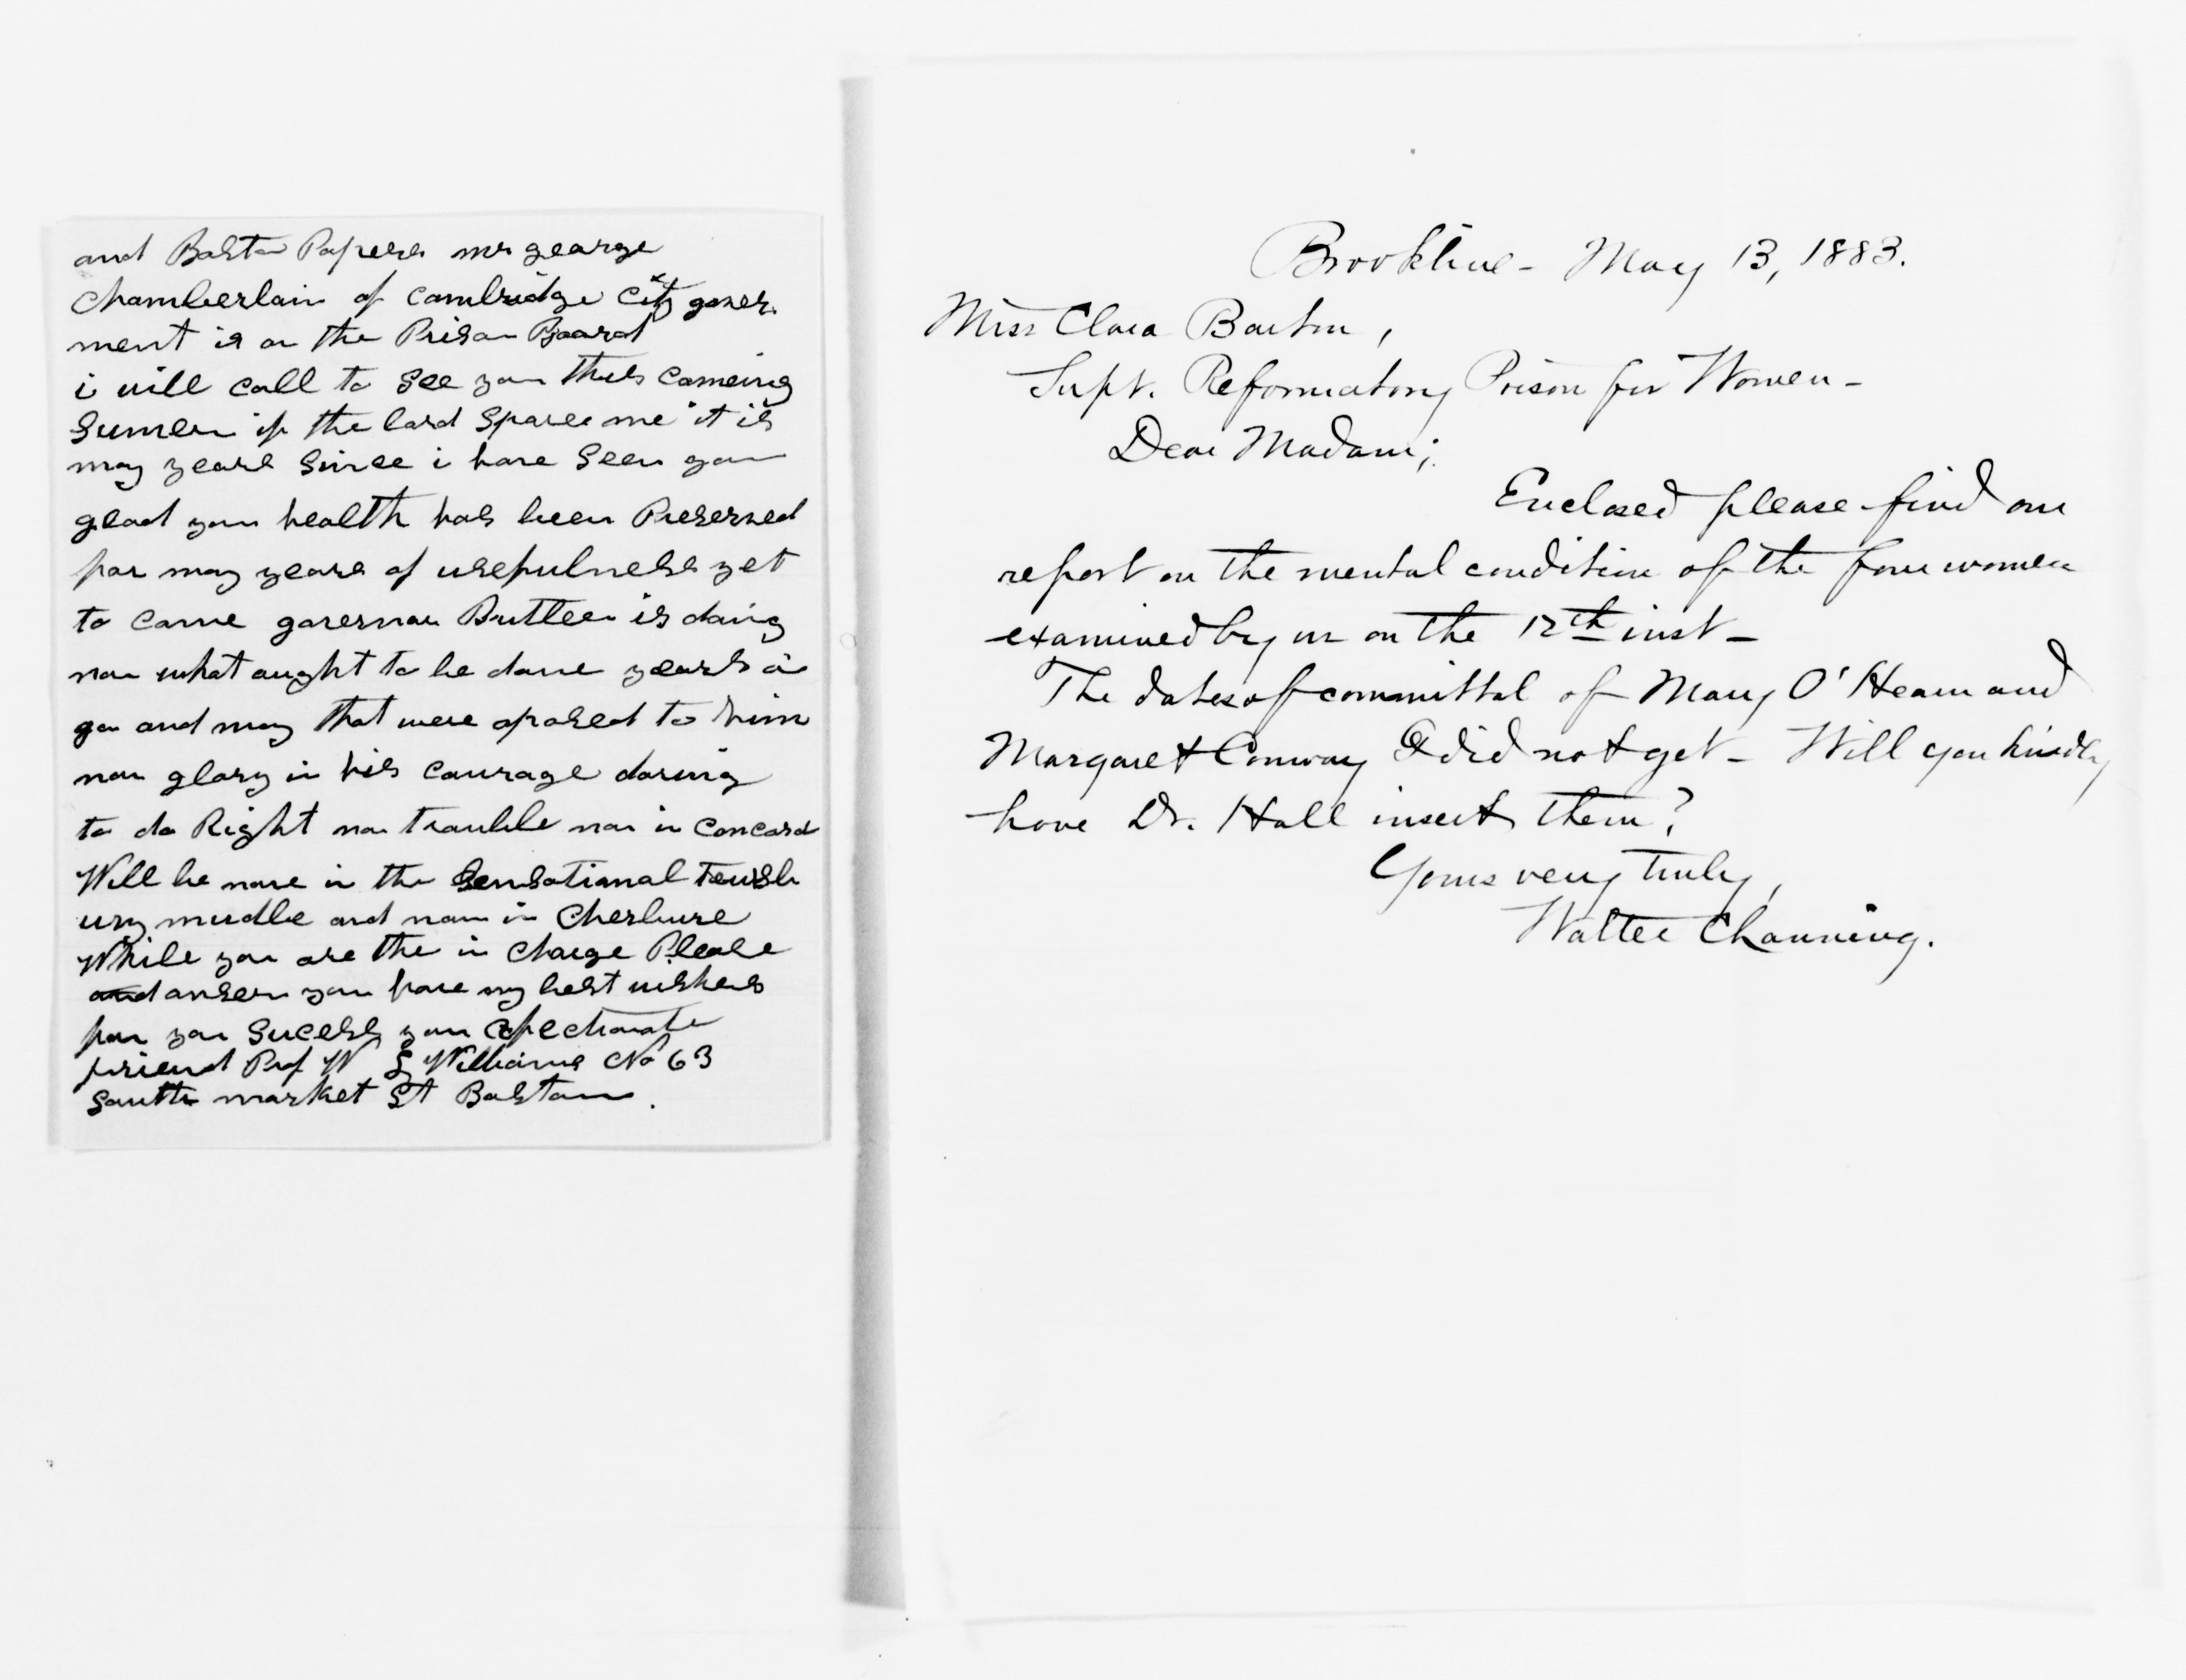 and Boston Papers mr george
Chamberlain of Cambridge City gover.
ment is on the Prison Board
i will call to See you this comeing
Sumer if the lord Spares me it is
may years Since i have Seen you
glad your health has been Preserved
for may years of usefulness yet
to come governor Buttler is doing
now what aught to be done years a
go and may that were oposed to him
now glory in his courage daring
to do Right no trouble now in concord
Will be none in the Sensational Tewsb
ury mudle and now in Cherbure
While you are the in charge Please
and anser you have my best wishes
for your Sucess your afectionate
friend Prof W S Williams No 63
South market St Boston.
Brookline - May 13, 1883.
Miss Clara Barton,
Supt. Reformatory Prison for Women -
Dear Madam;
Enclosed please find our
report on the mental condition of the four women
examined by us on the 12th inst -
The dates of committal of Mary O'Hearn and
Margaret Conway I did not get - Will you kindly
have Dr. Hall insert them?
Yours very truly,
Walter Channing.